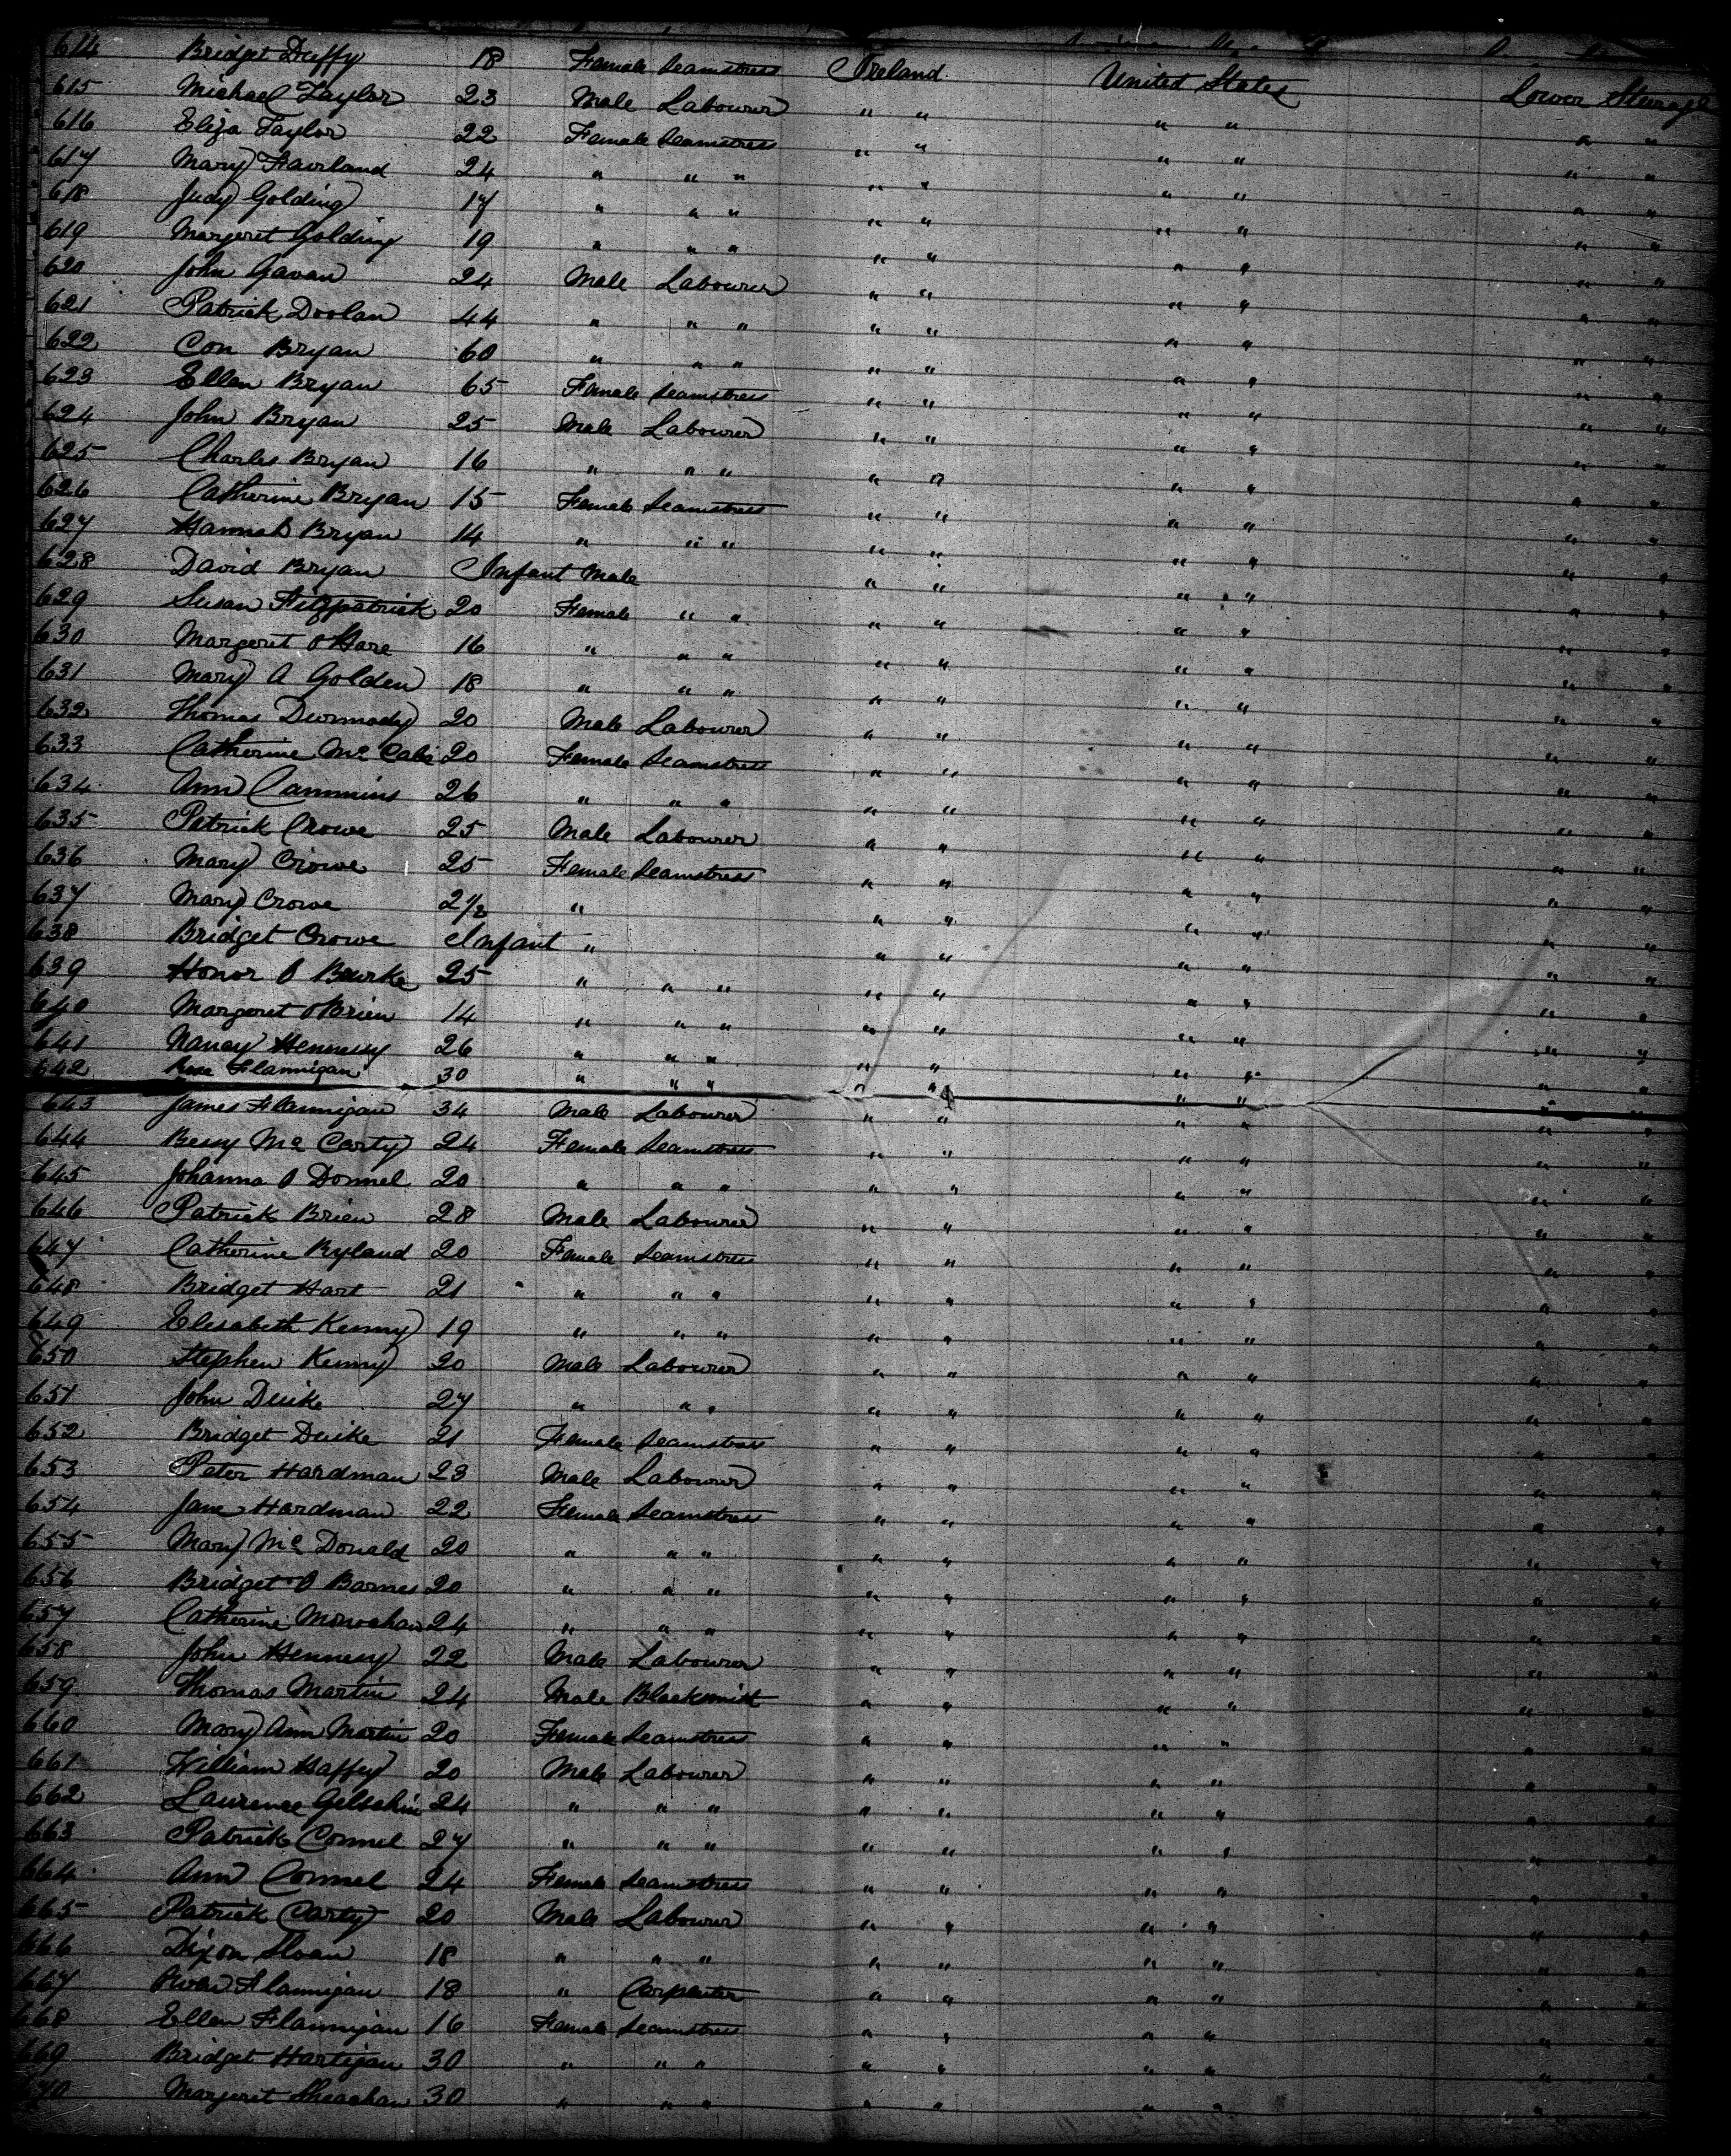 614 Bridget Duffy 18 Female Seamstress Ireland United States Lower Steerage
615 Michael Taylor 23 Male Labourer " " " " " "
616 Eliza Taylor 22 Female Seamstress " " " " " "
617 Mary Haverland 24 " " " " " " " " "
618 Judy Golding 17 " " " " " " " " "
619 Margeret Golding 19 " " " " " " " " "
620 John Gavan 24 Male Labourer " " " " " "
621 Patrick Doolan 44 " " " " " " " " "
622 Con Bryan 60 " " " " " " " " "
623 Ellen Bryan 65 Female Seamstress " " " " " "
624 John Bryan 25 Male Labourer " " " " " "
625 Charles Bryan 16 " " " " " " " " "
626 Catherine Bryan 15 Female Seamstress " " " " " "
627 Hannah Bryan 14 " " " " " " " " "
628 David Bryan Infant Male " " " " " "
629 Susan Fitzpatrick 20 Female " " " " " " " "
630 Margeret O Hare 16 " " " " " " " " "
631 Mary A Golden 18 " " " " " " " " "
632 Thomas Durmady 20 Male Labourer " " " " " "
633 Catherine Mc Cabe 20 Female Seamstress " " " " " "
634 Ann Cammins 26 " " " " " " " " "
635 Patrick Crowe 25 Male Labourer " " " " " "
636 Mary Crowe 25 Female Seamstress " " " " " "
637 Mary Crowe 2 1/2 " " " " " " "
638 Bridget Crowe Infant " " " " " " "
639 Honor O Bourke 25 " " " " " " " " "
640 Margeret O Brien 14 " " " " " " " " "
641 Nancy Hennessy 26 " " " " " " " " "
642 Rose Flannigan 30 " " " " " " " " "
643 James Flannigan 34 Male Labourer " " " " " "
644 Bessy Mc Carty 24 Female Seamstress " " " " " "
645 Johanna O Donnel 20 " " " " " " " " "
646 Patrick Brien 28 Male Labourer " " " " " "
647 Catherine Ryland 20 Female Seamstress " " " " " "
648 Bridget Hart 21 " " " " " " " " "
649 Elesabeth Kenny 19 " " " " " " " " "
650 Stephen Kenny 20 Male Labourer " " " " " "
651 John Duike 27 " " " " " " " " "
652 Bridget Duike 21 Female Seamstress " " " " " "
653 Peter Hardman 23 Male Labourer " " " " " "
654 Jane Hardman 22 Female Seamstress " " " " " "
655 Mary Mc Donald 20 " " " " " " " " "
656 Bridget O Barnes 20 " " " " " " " " "
657 Catherine Monoghan 24 " " " " " " " " "
658 John Hennesy 22 Male Labourer " " " " " "
659 Thomas Martin 24 Male Blacksmith " " " " " "
660 Mary Ann Martin 20 Female Seamstress " " " " " "
661 William Haffey 20 Male Labourer " " " " " "
662 Laurence 24 " " " " " " " " "
663 Patrick Connel 27 " " " " " " " " "
664 Ann Connel 24 Female Seamstress " " " " " "
665 Patrick Carty 20 Male Labourer " " " " " "
666 Dixon Sloan 18 " " " " " " " " "
667 Owen Flannigan 18 " Carpenter " " " " " "
668 Ellen Flannigan 16 Female Seamstress " " " " " "
669 Bridget Hartigan 30 " " " " " " " " "
670 Margeret Sheaghan 30 " " " " " " " "